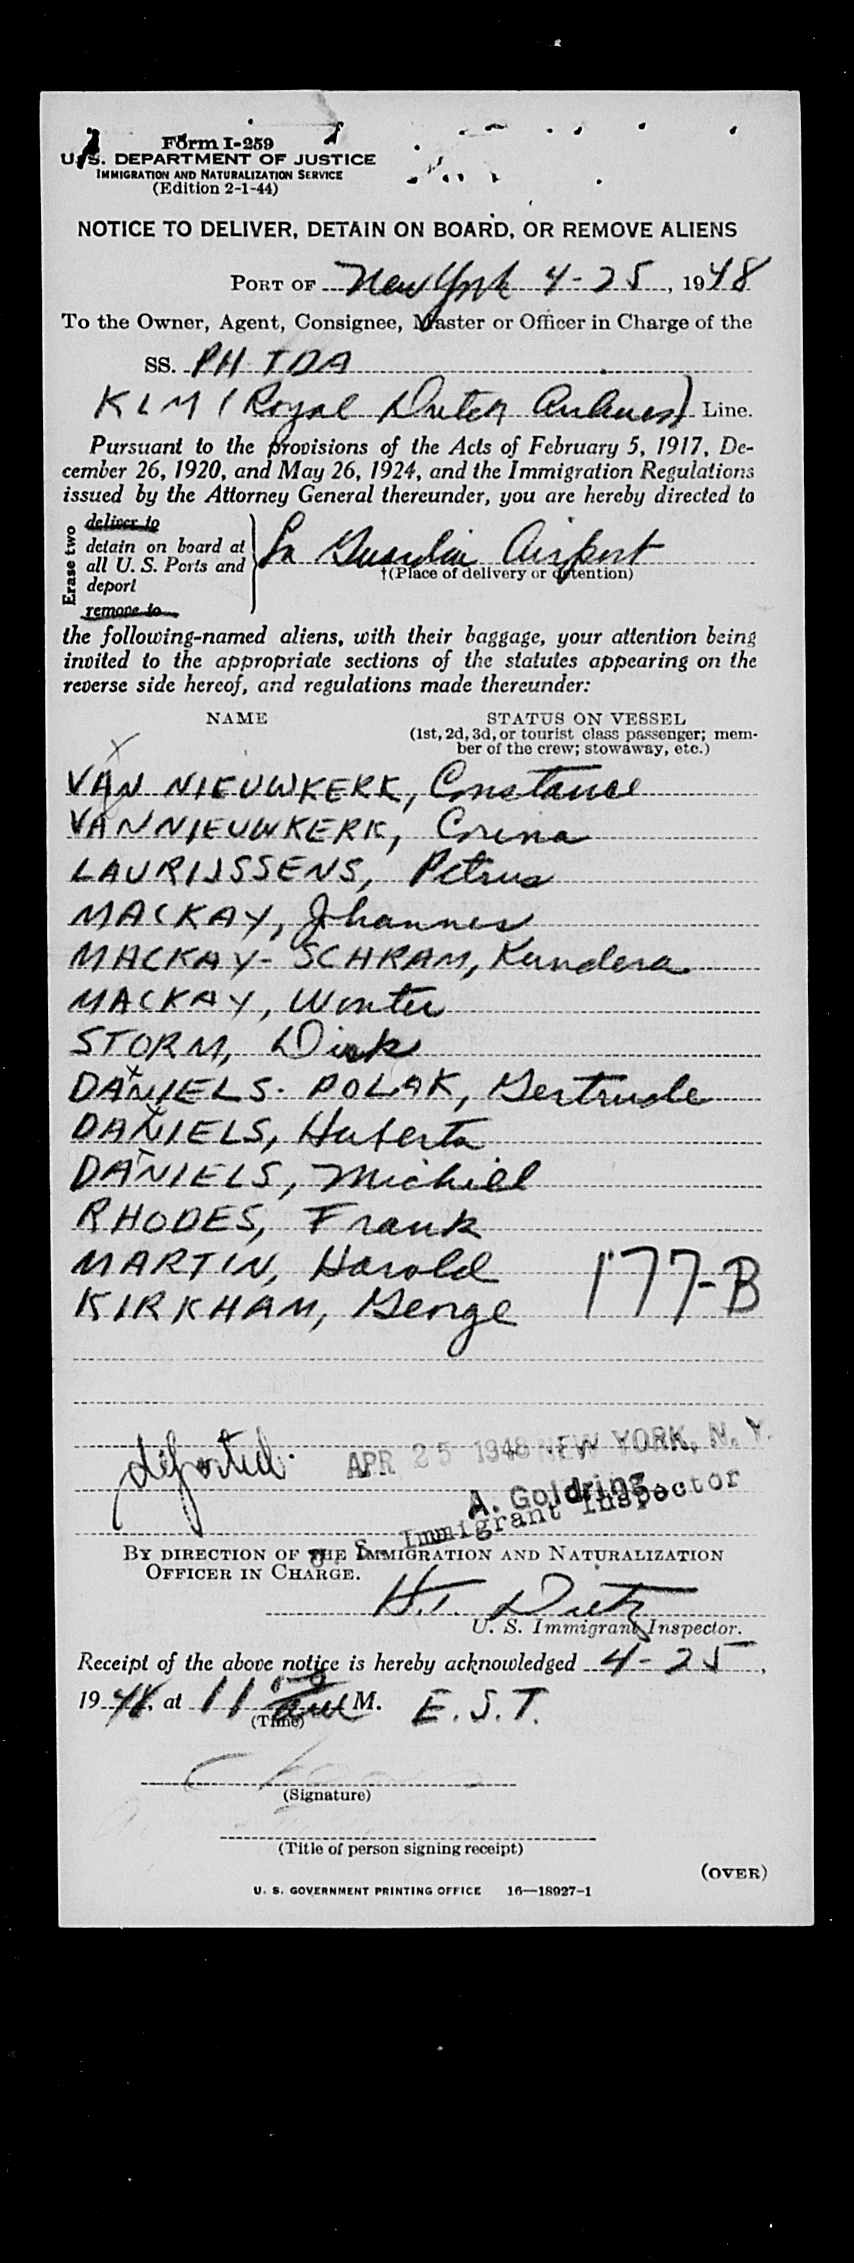 Form I-259
U. S. DEPARTMENT OF JUSTICE
IMMIGRATION AND NATURALIZATION SERVICE
(Edition 2-1-44)
NOTICE TO DELIVER, DETAIN ON BOARD, OR REMOVE ALIENS
PORT OF New York 4-25, 1948
To the Owner, Agent, Consignee, Master or Officer in Charge of the
SS. PH-TDA
KLM (Royal Dutch Airlines) Line.
Pursuant to the provisions of the Acts of February 5, 1917, De-
cember 26, 1920, and May 26, 1924, and the Immigration Regulations
issued by the Attorney General thereunder, you are hereby directed to
Erase two
deliver to
detain on board at
all U. S. Ports and
deport
remove to
La Guardia Airport
†(Place of delivery or detention)
the following-named aliens, with their baggage, your attention being
invited to the appropriate sections of the statutes appearing on the
reverse side hereof, and regulations made thereunder:
NAME STATUS ON VESSEL
(1st, 2d, 3d, or tourist class passenger; mem-
ber of the crew; stowaway, etc.)
VAN NIEUWKERK, Constance
VAN NIEUWKERK, Corina
LAURIJSSENS, Petrus
MACKAY, Johannes
MACKAY-SCHRAM, Kundera
MACKAY, Wouter
STORM, Dirk
DANIELS-POLAK, Gertrude
DANIELS, Huberta
DANIELS, Michiel
RHODES, Frank
MARTIN, Harold 177-B
KIRKHAM, George
deported. APR 25 1948 NEW YORK, N. Y.
A. Goldring
U. S. Immigrant Inspector
BY DIRECTION OF THE IMMIGRATION AND NATURALIZATION
OFFICER IN CHARGE.
H.T. Dietz
U. S. Immigrant Inspector.
Receipt of the above notice is hereby acknowledged 4-25,
1948, at 11 00 am M. E.S.T.
(Time)
(Signature)
(Title of person signing receipt)
(OVER)
U. S. GOVERNMENT PRINTING OFFICE 16—18927-1